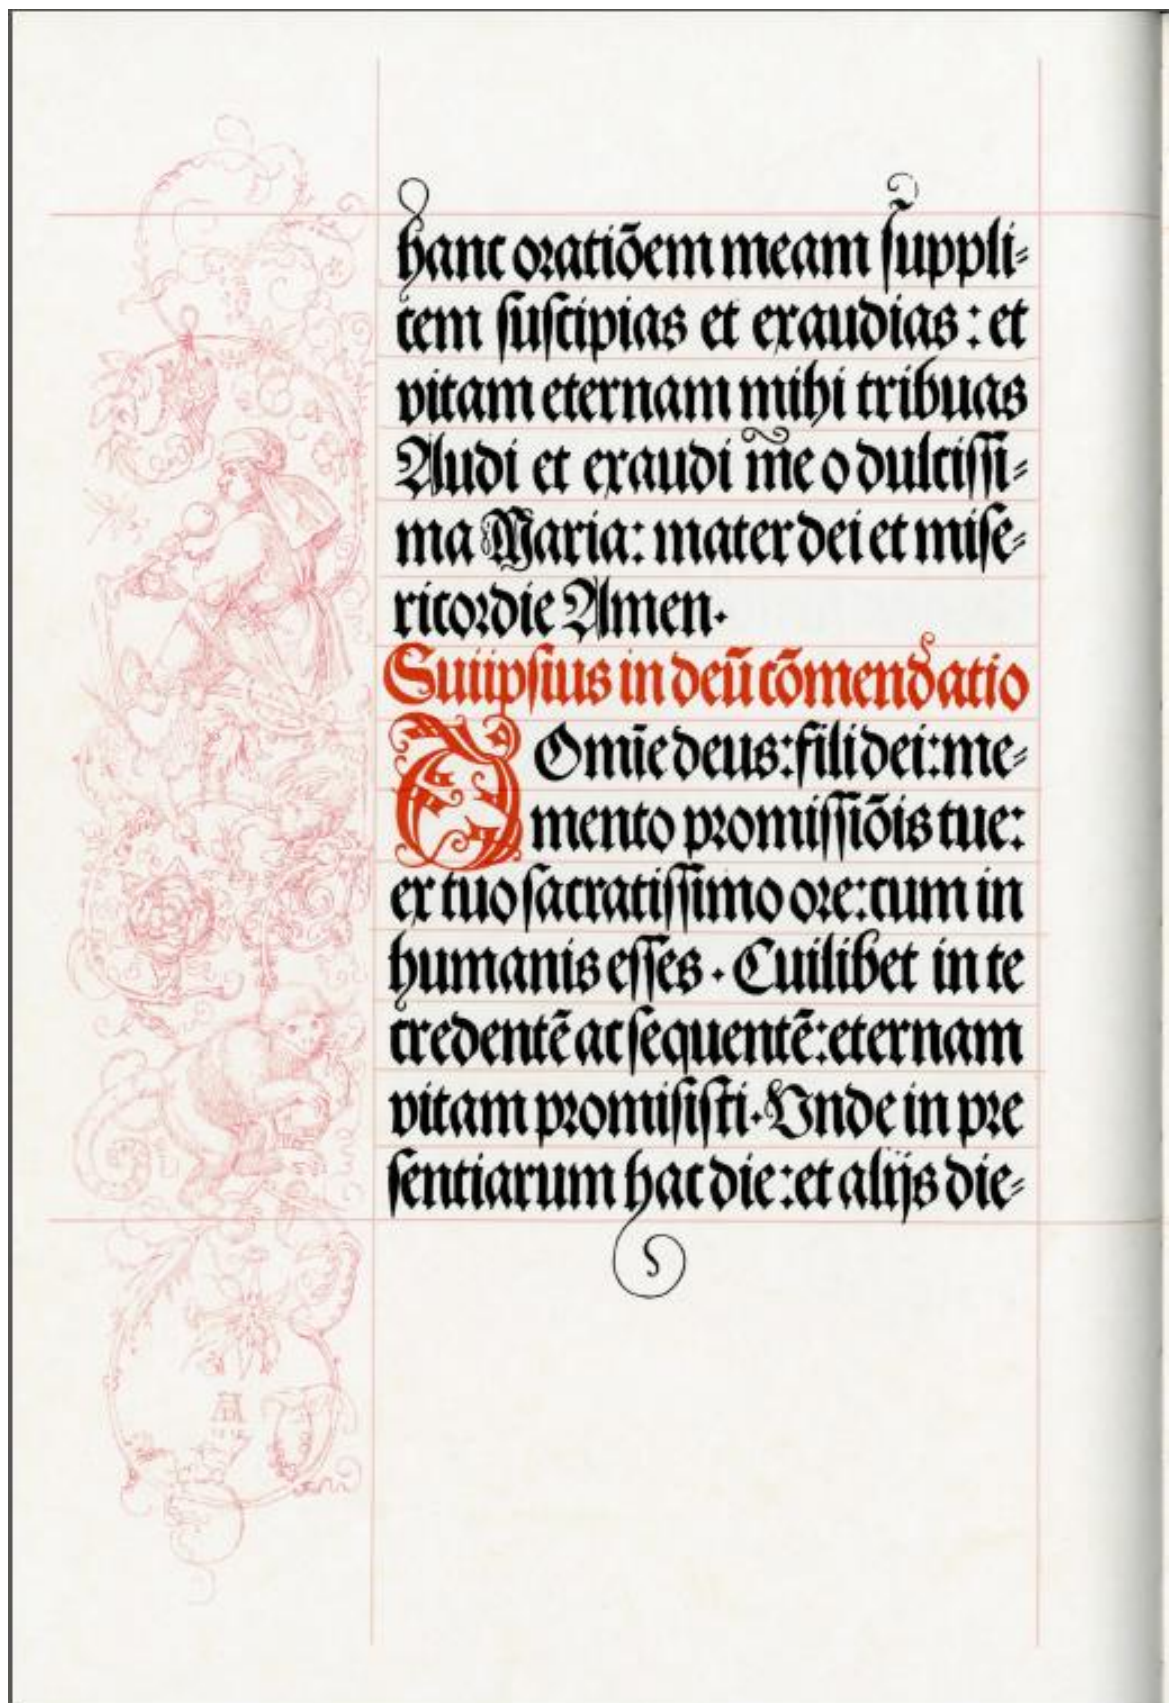 hanc oratiōem meam suppli⸗
cem suscipias et exaudias : et
vitam eternam mihi tribuas
Audi et exaudi me o dulcissi⸗
ma Maria: mater dei et mise⸗
ricordie Amen.
Suiipsius in deū cōmendatio
DOmīe deus: fili dei: me⸗
mento promissiōis tue:
ex tuo sacratissimo ore: cum in
humanis esses . Cuilibet in te
credentē ac sequentē: eternam
vitam promisisti. Unde in pre
sentiarum hac die: et alijs die⸗